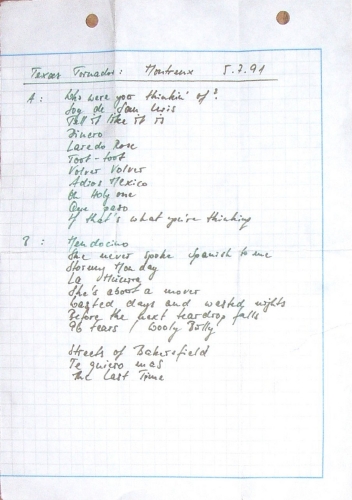 Texas Tornados: Montreux 5.7.91
A: Who were you thinkin' of?
Soy de San Luis
Tell it like it is
Dinero
Laredo Rose
Toot-toot
Volver Volver
Adios Mexico
Oh Holy one
Que paso
If that's what you're thinking
B: Mendocino
She never spoke Spanish to me
Stormy Monday
La
She's about a mover
wasted days and wasted nights
Before the next teardrop falls
96 tears / Wooly Bully
Streets of Bakersfield
Te quiero mas
The Last Time